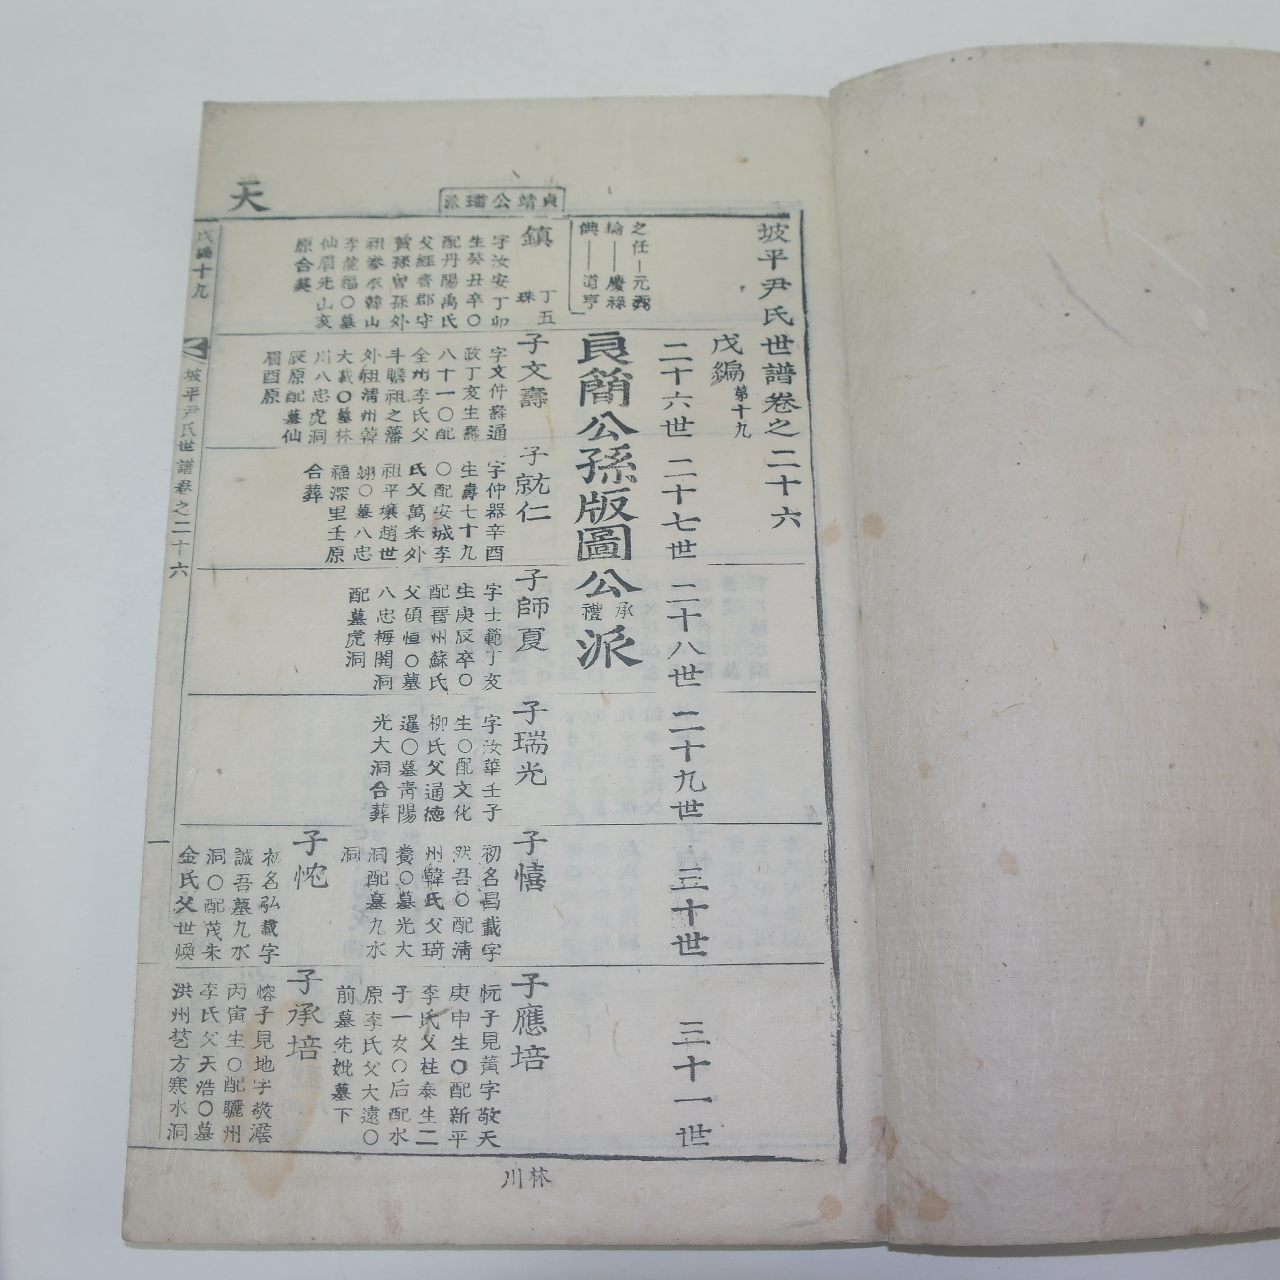 天
貞靖公璠派
坡平尹氏世譜卷之二十六
戊編 第十九
二十六世
二十七世
二十八世
二十九世
三十世
三十一世
之任 元弼
綸 慶祿
倎 道亨
良簡公孫版圖公承禮派
鎮 丁五 珠
字汝安丁卯
生癸丑卒〇
配丹陽禹氏
父經齊郡守
贊孫曾孫外
祖參奉韓山
李龍福〇墓
仙眉先山亥
原合葬
子文壽
字文仲壽通
政丁亥生壽
八十一〇配
全州李氏父
斗瞻祖之藩
外祖淸州韓
大載〇墓林
川八忠虎洞
辰原配墓仙
眉酉原
子就仁
字仲器辛酉
生壽七十九
〇配安城李
氏父萬采外
祖平壤趙世
翊〇墓八忠
福深里壬原
合葬
子師夏
字士範丁亥
生庚辰卒〇
配晋州蘇氏
父碩恒〇墓
八忠梅開洞
配墓虎洞
子瑞光
字汝華壬子
生〇配文化
柳氏父通德
暹〇墓靑陽
光大洞合葬
子憘
初名昌載字
然吾〇配淸
州韓氏父琦
養〇墓光大
洞配墓九水
洞
子忱
初名弘載字
誠吾墓九水
洞〇配茂朱
金氏父世煥
子應培
忨子見黃字敬天
庚申生〇配新平
李氏父柱泰生二
子一女〇后配水
原李氏父大遠〇
前墓先妣墓下
子承培
愹子見地字敬澹
丙寅生〇配驪州
李氏父天浩〇墓
洪州芚方寒水洞
戊編十九
坡平尹氏世譜卷之二十六
一
林川